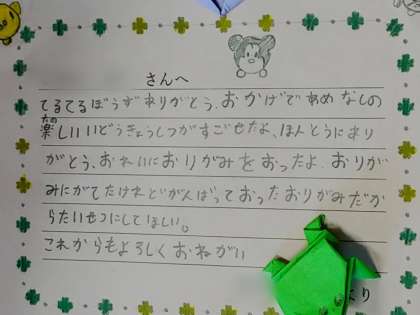 さんへ
てるてるぼうずありがとう、おかげであめなしの
楽しいいどうきょうしつがすごせたよ、ほんとうにあり
たの
がとう、おれいにおりがみをおったよ、おりが
みにがてたけれどがんばっておったおりがみだか
らたいせつにしてほしい。
これからもよろしくおねがい
より